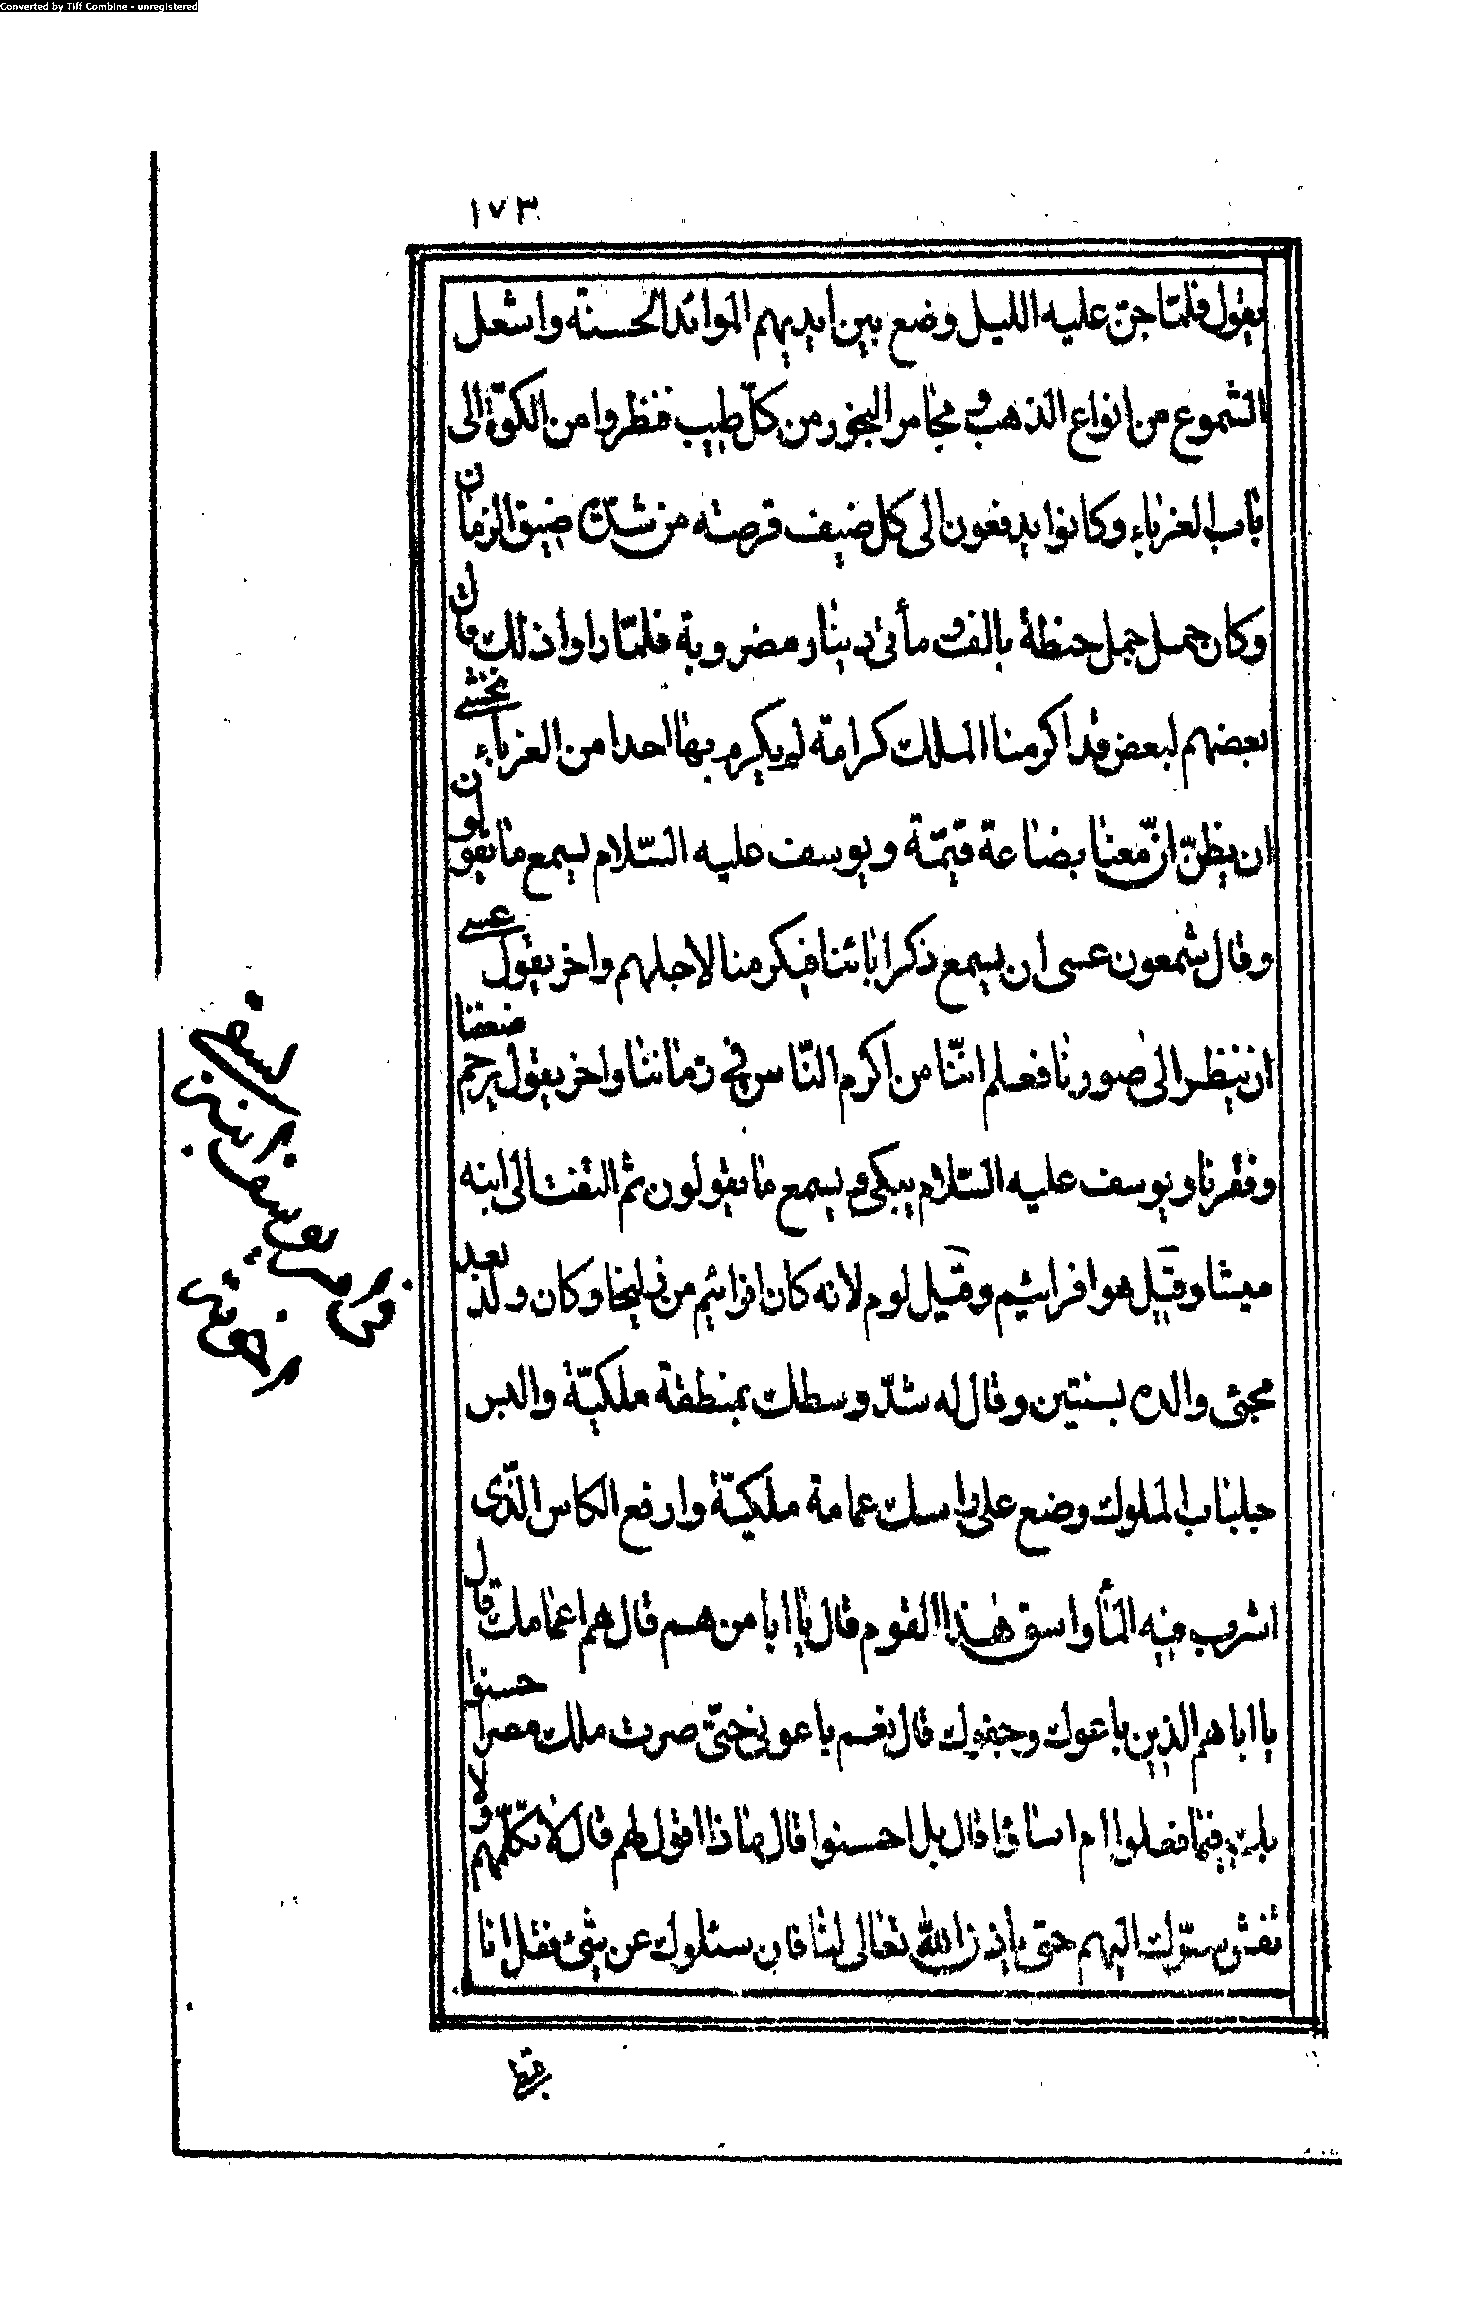 Converted by Tiff Combine - unregistered
١٧٣
يقول فلمّا جنّ عليه الليل وضع بين ايديهم الموائد الحسنة واشعل
الشموع من انواع الذهب و مجامر البخور من كلّ طيب فنظروا من الكوّة الى
باب الغرباء وكانوا يدفعون الى كل ضيف قرصته من شدّة ضيق الزمان
وكان حمل جمل حنطة بالف و مأتى دينار مضروبة فلمّا راوا ذلك قال
بعضهم لبعض قد اكرمنا الملك كرامة لم يكرم بها احدا من الغرباء نخشى
ان يظنّ انّ معنا بضاعة قيمّة و يوسف عليه السّلام يسمع ما يقولون
وقال شمعون عسى ان يسمع ذكر ابائنا فيكرمنا لاجلهم واخر يقول عسى
ان ينظر الى صورنا فعلم انّنا من اكرم النّاس فى زماننا واخر يقول يرحم ضعفنا
وفقرنا و يوسف عليه السّلام يبكى و يسمع ما يقولون ثم التفت الى ابنه
ميشا و قيل هو افراثيم و قيل لوم لانه كان افراثيم من زليخا وكان ولد بعد
مجئ والده بسنتين و قال له شدّ وسطك بمنطقة ملكيّة والبس
جلباب الملوك وضع على راسك عمامة ملكيّة وارفع الكاس الّذى
اشرب فيه المأ واسق هذا القوم قال يا ابا من هم قال هم اعمامك قال
يا ابا هم الذين باعوك وجفوك قال نعم باعونى حتّى صرت ملك مصر احسنوا
فيما فعلوا ام اساؤا قال بل احسنوا قال ما ذا اقول لهم قال لا تكلّمهم ولا
تفش سرّك اليهم حتى يأذن الله تعالى لنا فان سئلوك عن شئ فقل انا